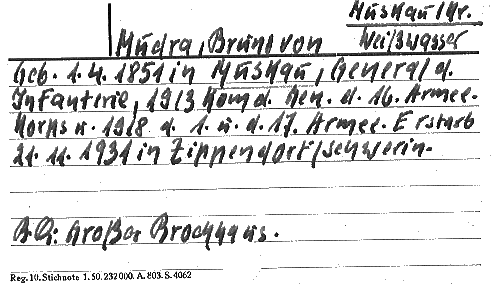 Muskau/Kr.
Weißwasser
Mudra, Bruno von
Geb. 1.4. 1851 in Muskau, General d.
Infanterie, 1913 Komd. Gen. d. 16. Armee-
Korps u. 1918 d. 1. u. d. 17. Armee. Er starb
21. 11. 1931 in Zippendorf/Schwerin.
B.Q.: Großer Brockhaus.
Reg. 10. Stichnote 1. 50. 232000. A. 803. S. 4062